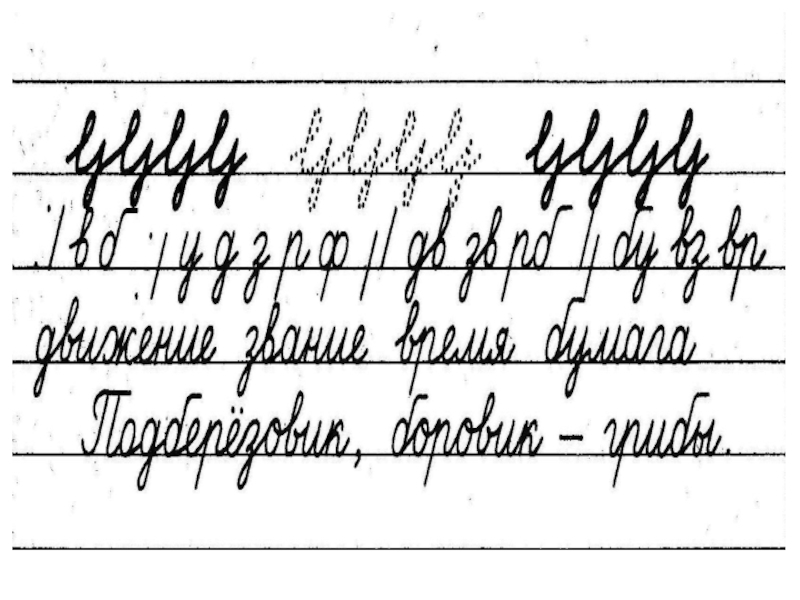 в б у д з р ф дв зв рб бу вз вр
движение звание время бумага
Подберёзовик, боровик – грибы.